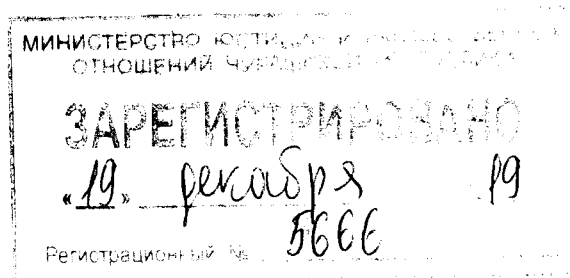 МИНИСТЕРСТВО ЮСТИЦИИ И
ОТНОШЕНИЙ ЧУВАШСКОЙ
ЗАРЕГИСТРИРОВАНО
«19» декабря 19
Регистрационный № 5666